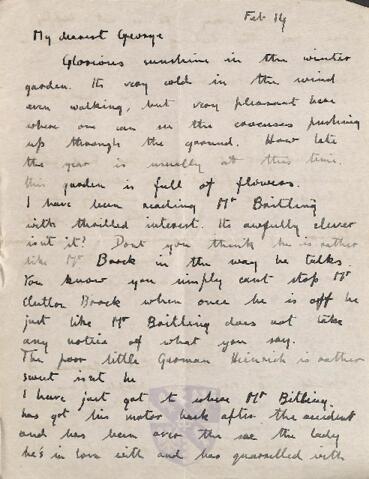 Feb 14
My dearest George
Glorious sunshine in the winter
garden. Its very cold in the wind
even walking, but very pleasant here
where one can see the crocuses pushing
up through the ground. How late
the year is usually at this time
this garden is full of flowers.
I have been reading Mr Britling
with thrilled interest. Its awfully clever
isnt it? Dont you think he is rather
like Mr Brock in the way he talks.
You know you simply cant stop Mr
Clutton Brock when once he is off he
just like Mr Britling does not take
any notice of what you say.
The poor little German Heinrich is rather
sweet isnt he
I have just got to where Mr Britling
has got his motor back after the accident
and has been over to see the lady
he's in love with and has quarrelled with